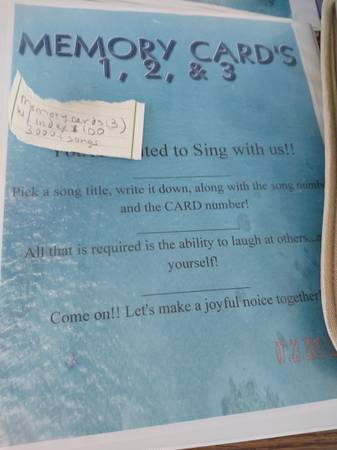 MEMORY CARD'S
1, 2, & 3
Memory cards (3)
w/ index $100
3000+ songs
to Sing with us!!
Pick a song title, write it down, along with the song
and the CARD number!
All that is required is the ability to laugh at others...
yourself!
Come on!! Let's make a joyful noice together